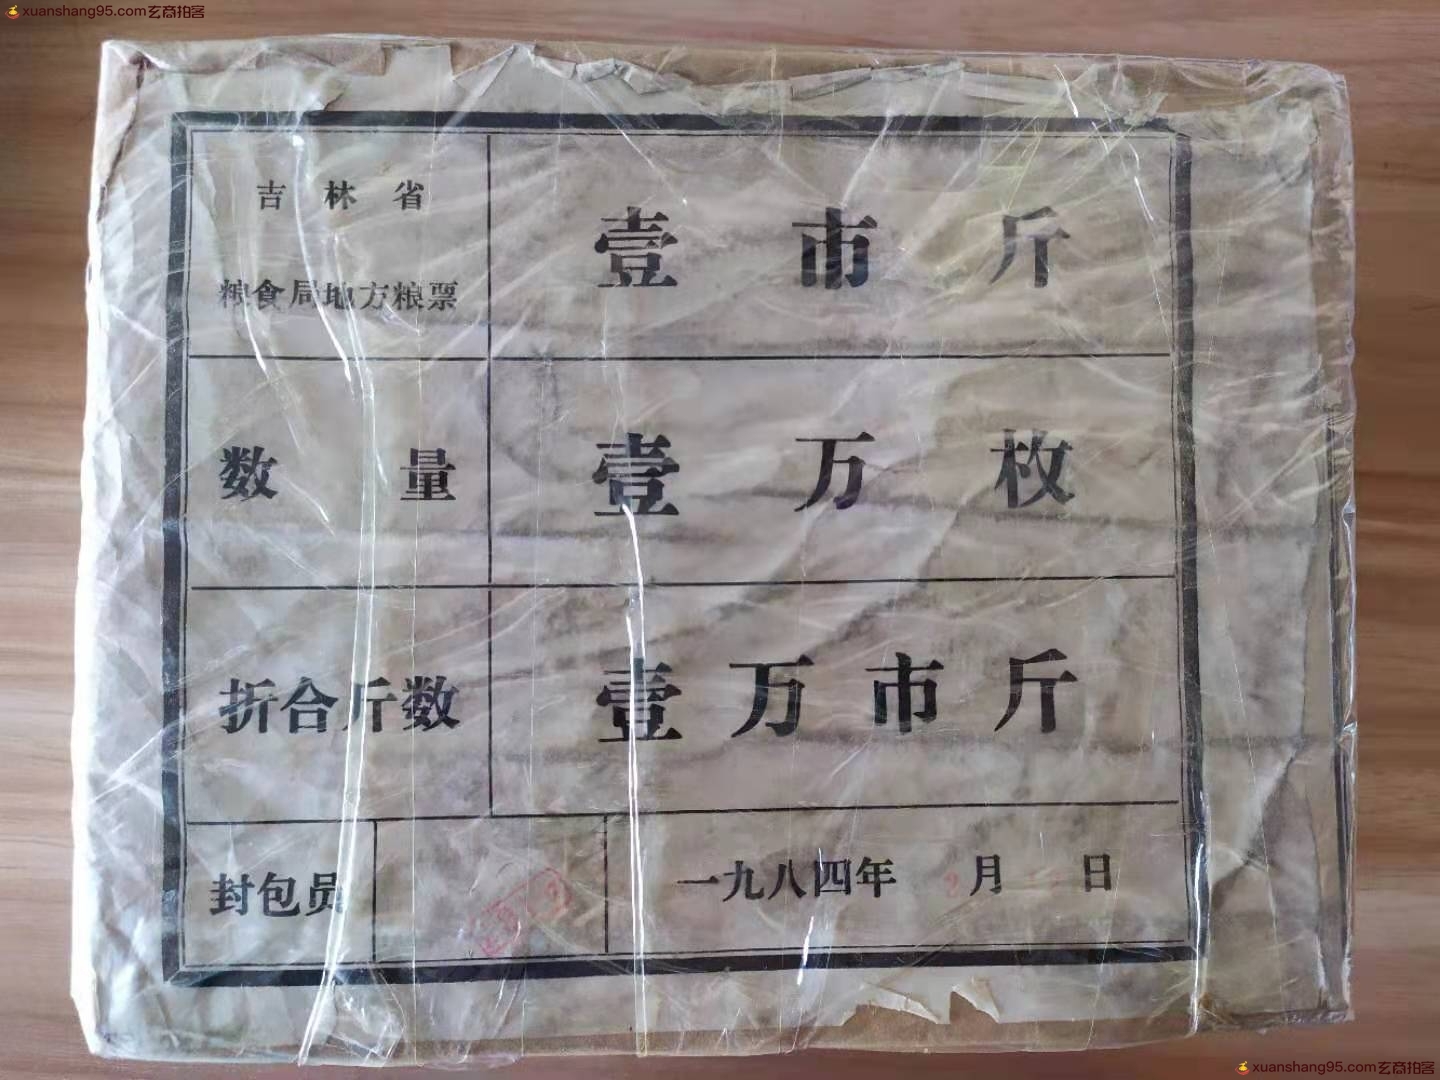 xuanshang95.com玄商拍客
吉林省
粮食局地方粮票
壹市斤
数量
壹万枚
折合斤数
壹万市斤
封包员
一九八四年 9月 日
xuanshang95.com玄商拍客